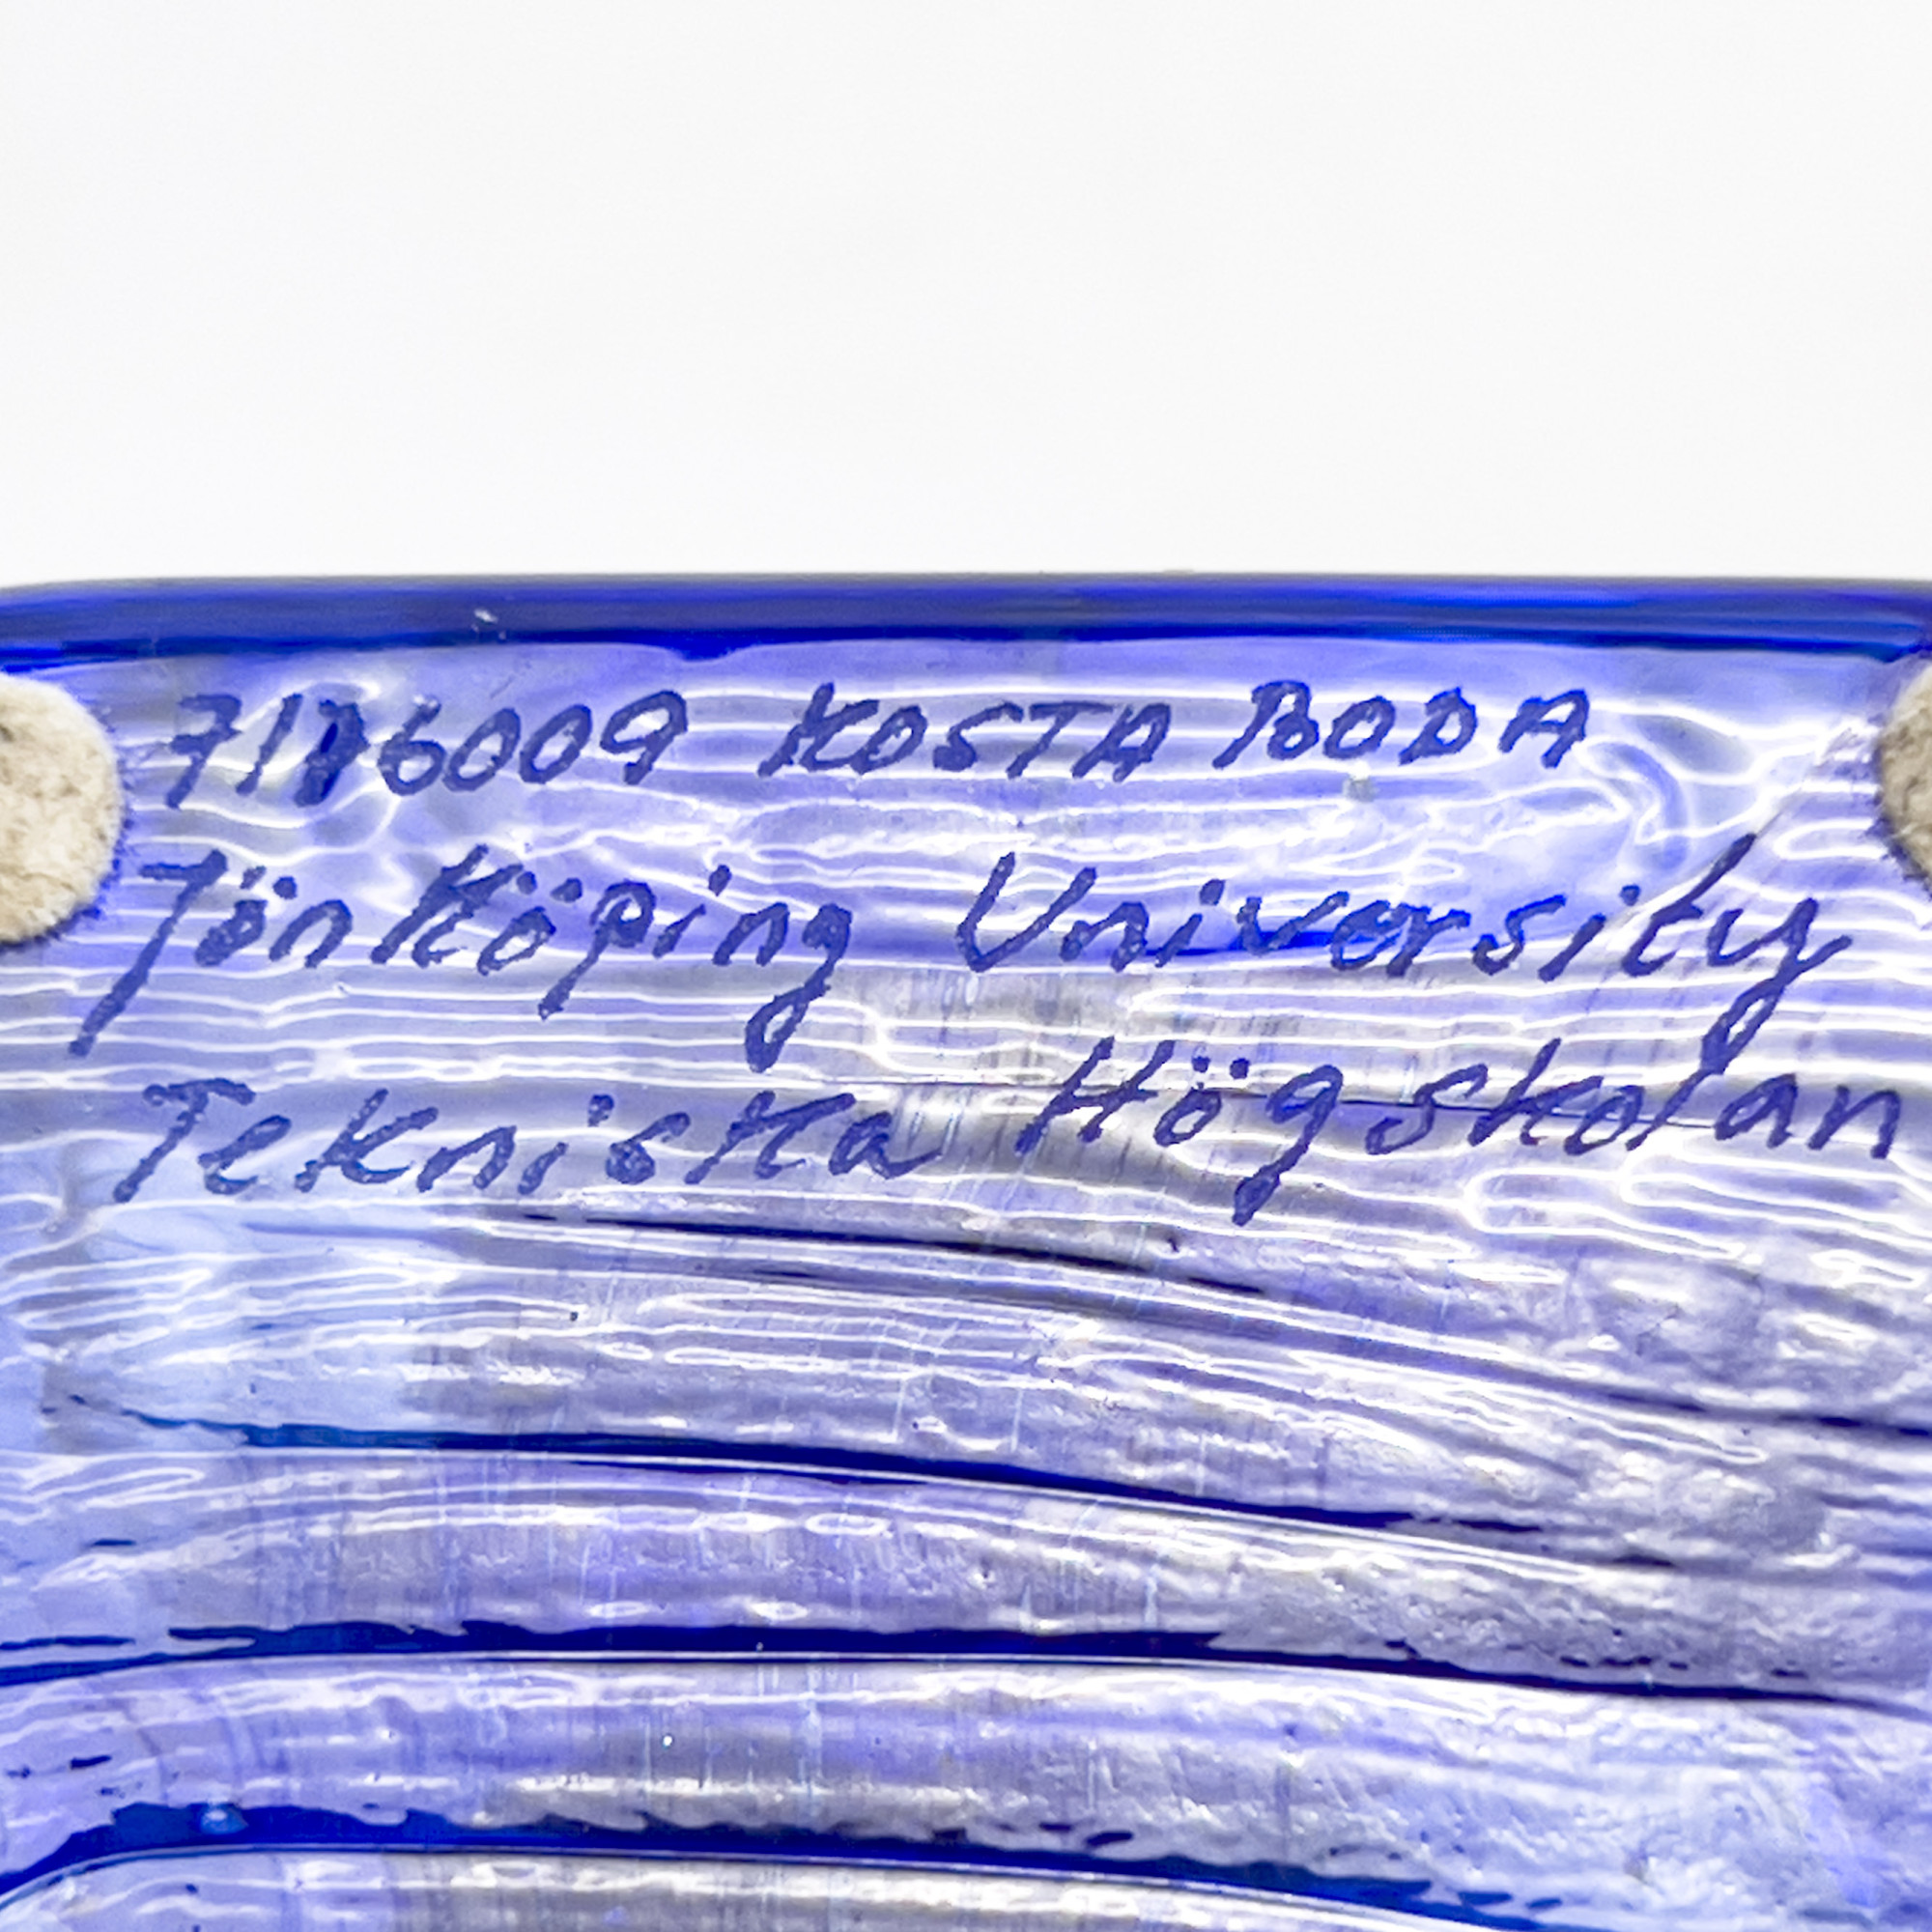 7186009 KOSTA BODA
Jönköping University
Tekniska Högskolan